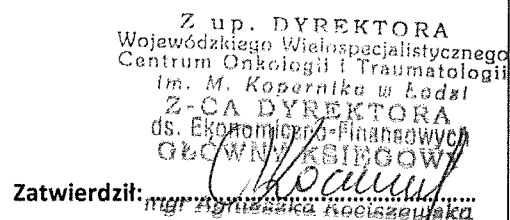 Z up. DYREKTORA
Wojewódzkiego Wielospecjalistycznego
Centrum Onkologii i Traumatologii
im. M. Kopernika w Łodzi
Z-CA DYREKTORA
ds. Ekonomiczno-Finansowych
GŁÓWNY KSIĘGOWY
Zatwierdził:
mgr Agnieszka Kociszewska